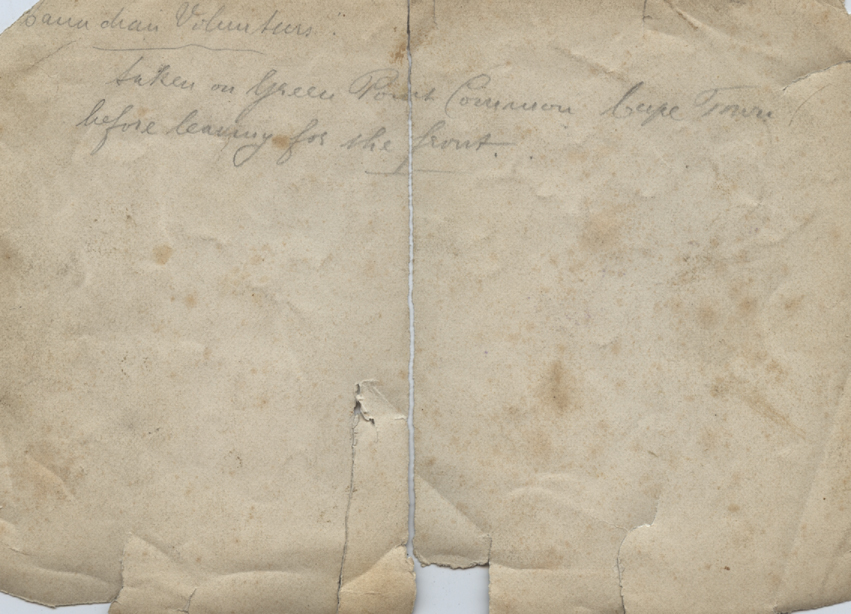 Canadian Volunteers.
taken on Green Point Common Cape Town
before leaving for the front